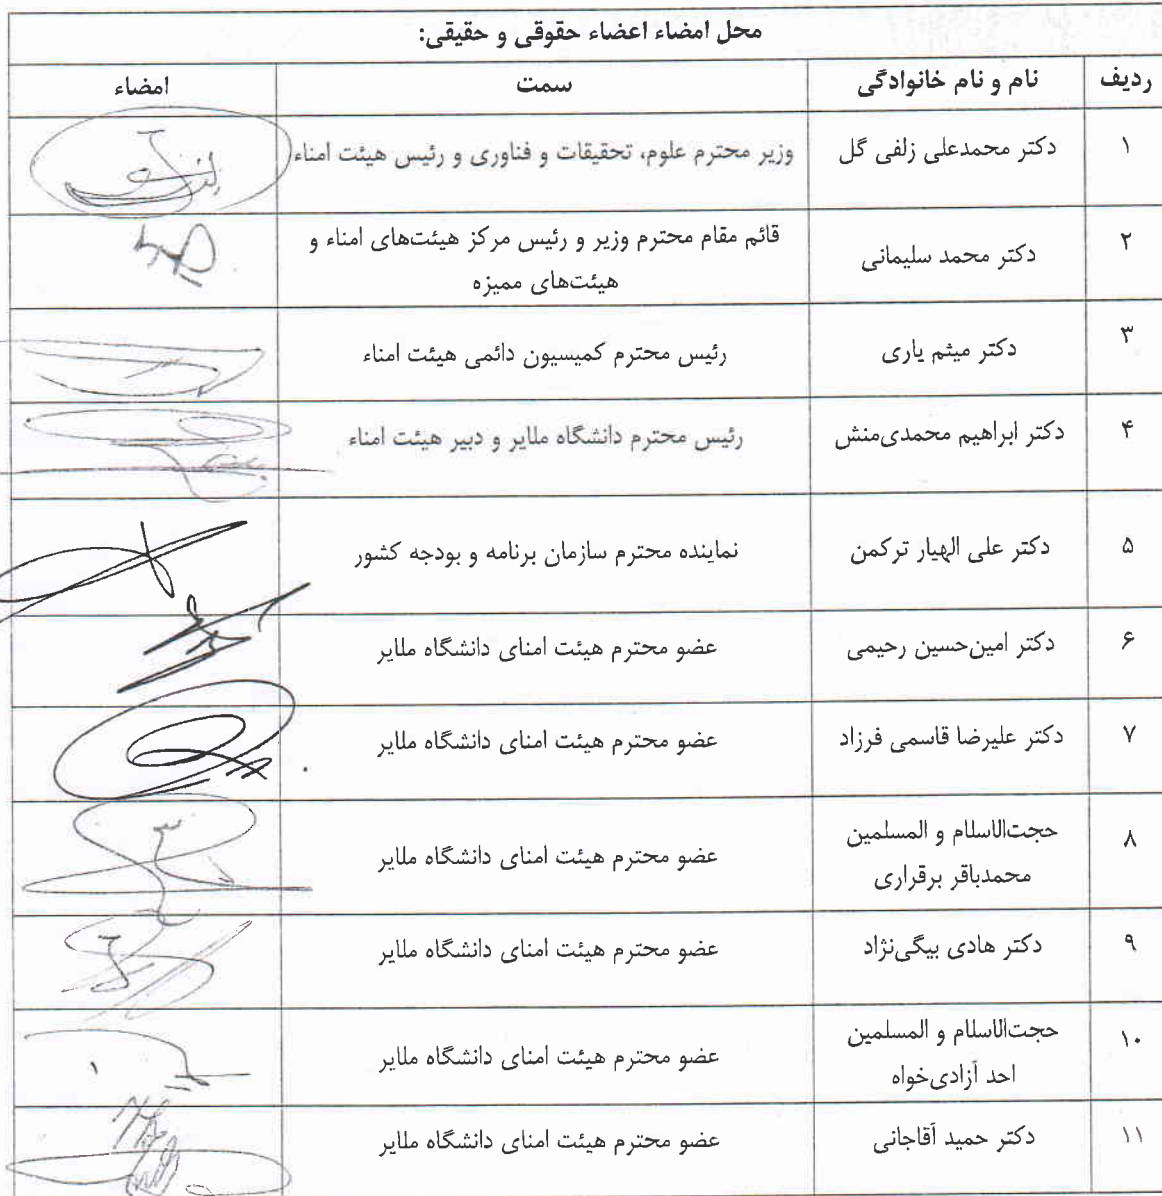 محل امضاء اعضاء حقوقی و حقیقی:
ردیف نام و نام خانوادگی سمت امضاء
۱ دکتر محمدعلی زلفی گل وزیر محترم علوم، تحقیقات و فناوری و رئیس هیئت امناء
۲ دکتر محمد سلیمانی قائم مقام محترم وزیر و رئیس مرکز هیئت‌های امناء و
هیئت‌های ممیزه
۳ دکتر میثم یاری رئیس محترم کمیسیون دائمی هیئت امناء
۴ دکتر ابراهیم محمدی‌منش رئیس محترم دانشگاه ملایر و دبیر هیئت امناء
۵ دکتر علی الهیار ترکمن نماینده محترم سازمان برنامه و بودجه کشور
۶ دکتر امین‌حسین رحیمی عضو محترم هیئت امنای دانشگاه ملایر
۷ دکتر علیرضا قاسمی فرزاد عضو محترم هیئت امنای دانشگاه ملایر
۸ حجت‌الاسلام و المسلمین
محمدباقر برقراری عضو محترم هیئت امنای دانشگاه ملایر
۹ دکتر هادی بیگی‌نژاد عضو محترم هیئت امنای دانشگاه ملایر
۱۰ حجت‌الاسلام و المسلمین
احد آزادی‌خواه عضو محترم هیئت امنای دانشگاه ملایر
۱۱ دکتر حمید آقاجانی عضو محترم هیئت امنای دانشگاه ملایر